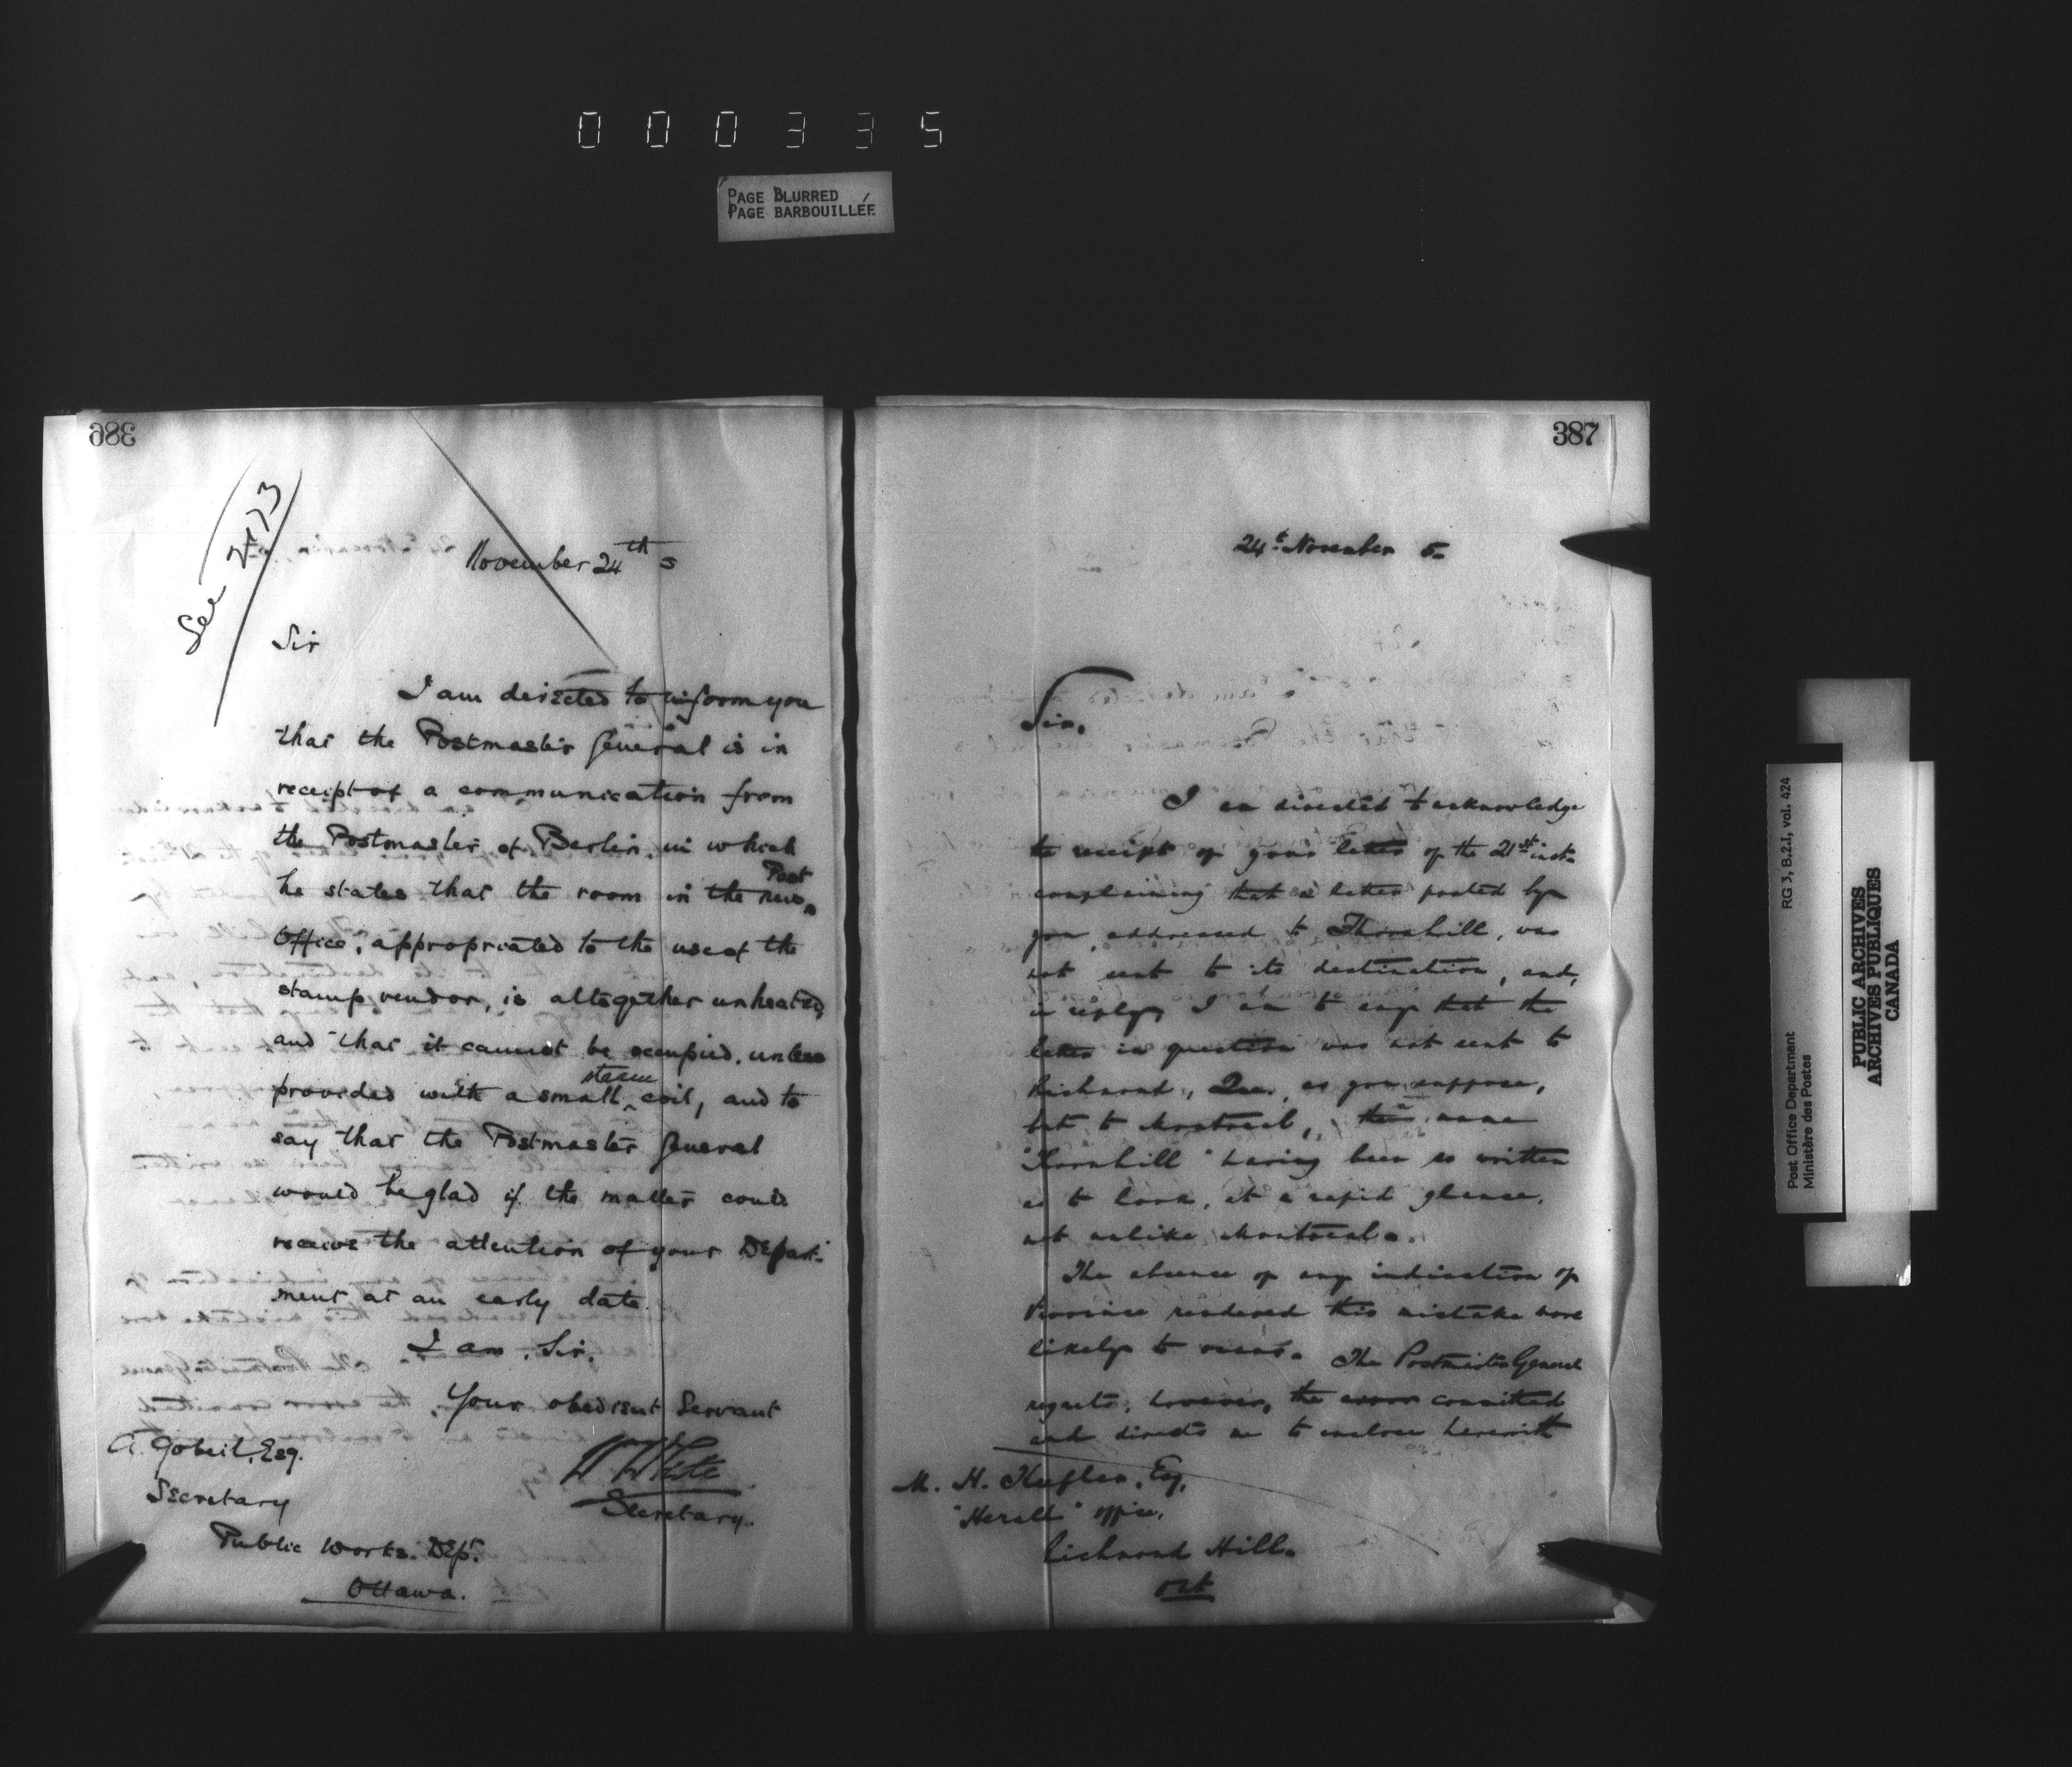 0 0 0 3 3 5
PAGE BLURRED
PAGE BARBOUILLÉE
386
See 2173
November 24th 5
Sir
I am directed to inform you
that the Postmaster General is in
receipt of a communication from
the Postmaster of Berlin, in which
he states that the room in the new Post
Office, appropriated to the use of the
stamp vendor, is altogether unheated,
and that it cannot be occupied, unless
provided with a small steam coil, and to
say that the Postmaster General
would be glad if the matter could
receive the attention of your Depart-
ment at an early date.
I am, Sir,
Your obedient Servant
W White
Secretary.
A. Gobeil, Esq.
Secretary
Public Works. Dept.
Ottawa.
387
24th November 5
Sir,
I am directed to acknowledge
the receipt of your letter of the 21st inst.
complaining that a letter posted by
you, addressed to Thornhill, was
not sent to its destination, and,
in reply, I am to say that the
letter in question was not sent to
Richmond, Que., as you suppose,
but to Montreal, the name
"Thornhill" having been so written
as to look, at a rapid glance,
not unlike Montreal.
The absence of any indication of
Province rendered this mistake more
likely to occur. The Postmaster General
regrets, however, the error committed
and directs me to enclose herewith
M. H. Keefler, Esq,
"Herald" office,
Richmond Hill.
Ont
Post Office Department
Ministère des Postes
RG 3, B.2.1, vol. 424
PUBLIC ARCHIVES
ARCHIVES PUBLIQUES
CANADA